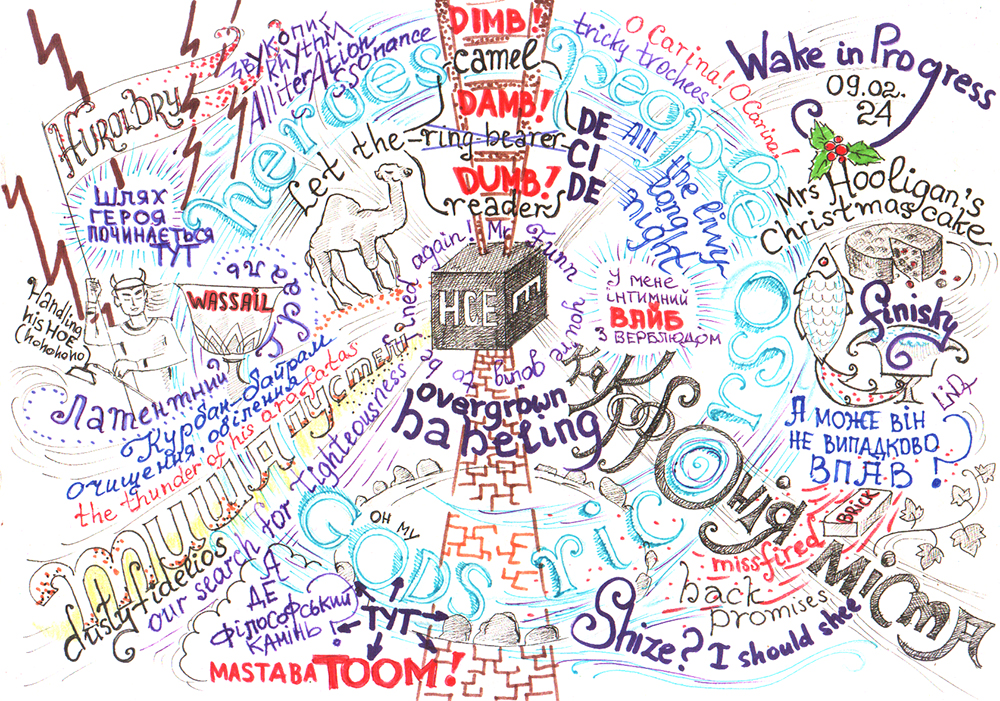 DIMB!
camel
DAMB!
ring bearer
DUMB!
reader
DE
CI
DE
Let the
ЗВУКОПИС
RhythM
AlliterAtion
Assonance
heroes
people
All
tricky trochees
O Carina! O Carina!
the livvy-
long
night
Wake in Progress
09.02.
24
Mrs Hooligan's
Christmas cake
finisky
LiNa
HUROLDRY
ШЛЯХ
ГЕРОЯ
ПОЧИНАЄТЬСЯ
ТУТ
Handling
his HOE
(hohohoho)
WASSAIL
Латентний
Грааль
НСЕ
E
Mr Finnn you're going to be fined again!
У МЕНЕ
ІНТИМНИЙ
ВАЙБ
З ВЕРБЛЮДОМ
overgrown
babeling
Курбан-байрам
очищення, обілення
the thunder of his arafatas
тиша пустелі
dusty fidelios
our search for tighteousness
какофонія
міста
person
Я МОЖЕ ВІН
НЕ ВИПАДКОВО
ВПАВ?
BRICK
missfired
back
promises
OH MY
GODS
ric
А
ДЕ
ФІЛОСОФСЬКИЙ
КАМІНЬ?
ТУТ
MASTABATOOM!
Shize? I should shee